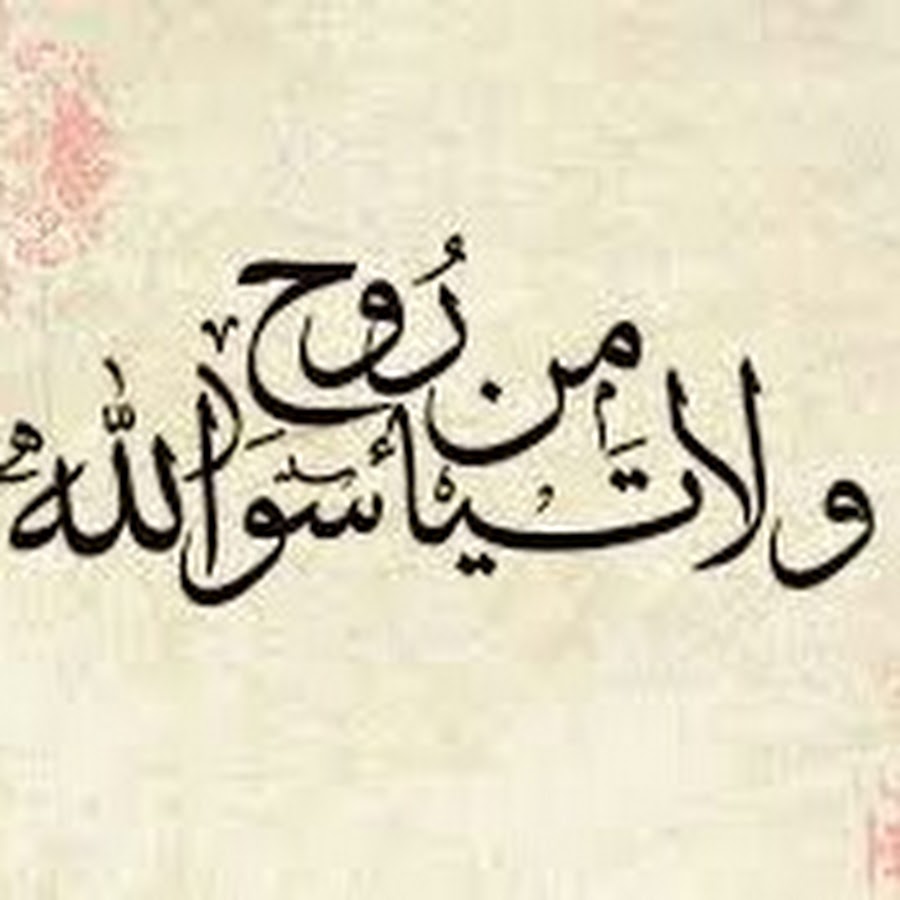 ولا تيأسوا من روح الله